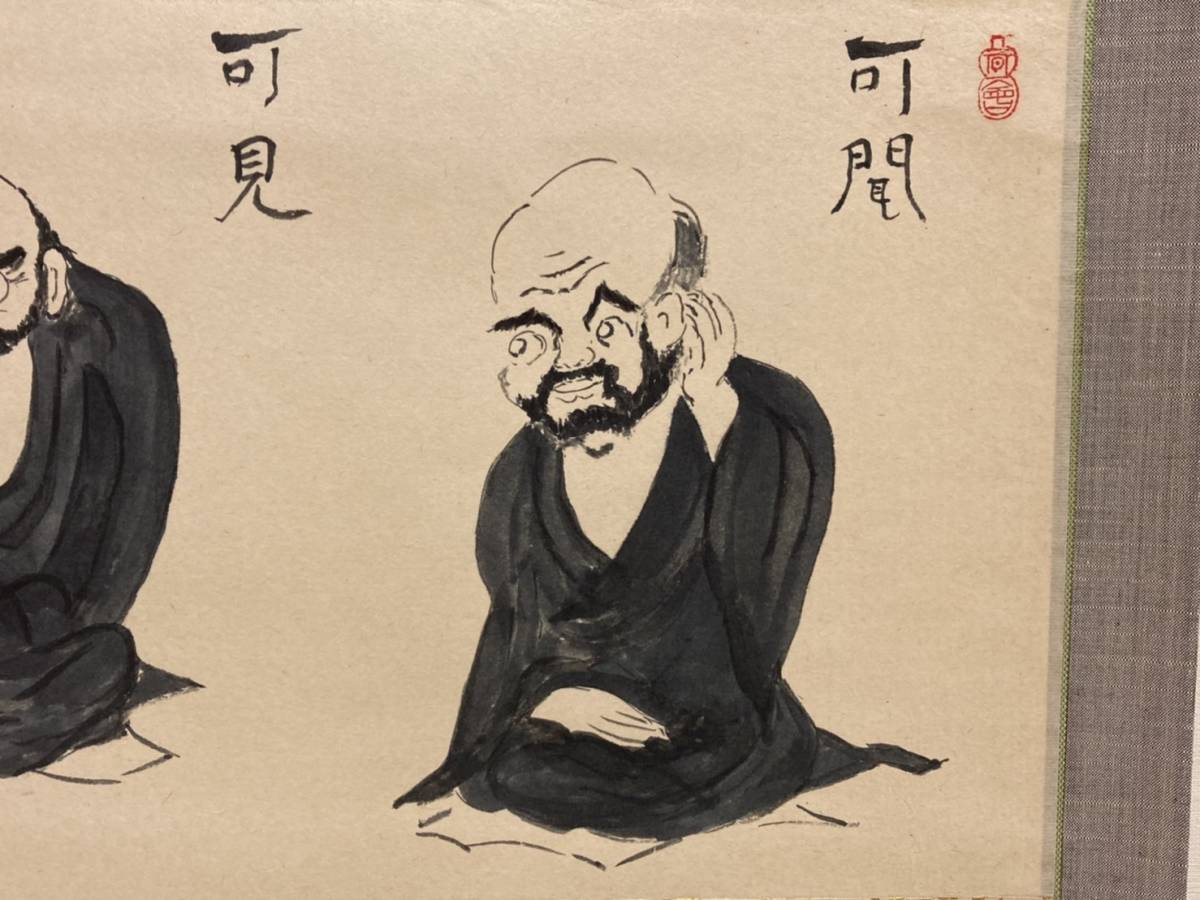 可聞
可見